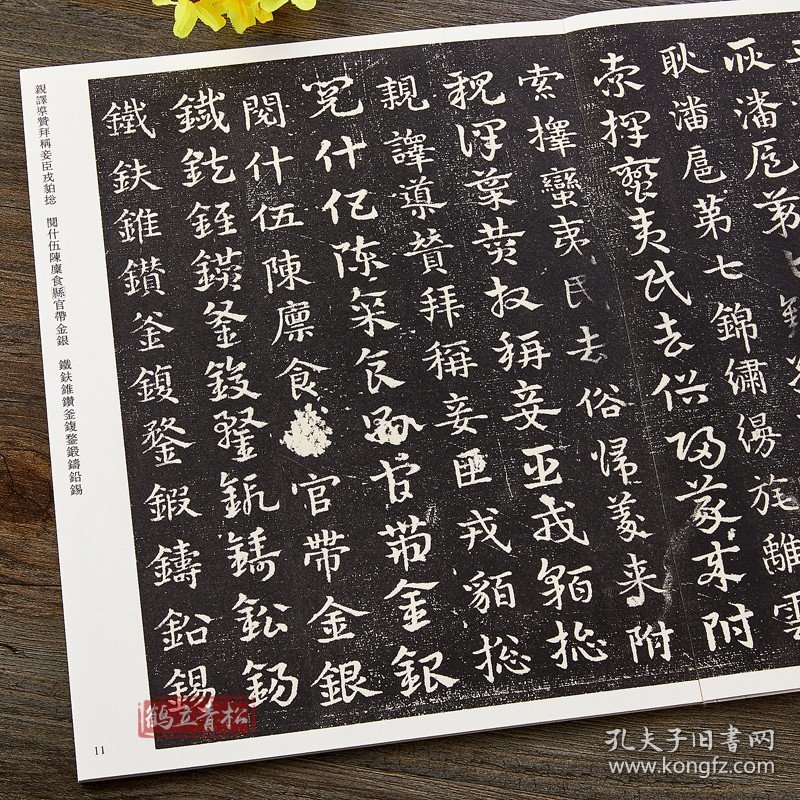 耿潘扈第七錦繡縵旄離雲
索擇蠻夷民去俗歸義來附
索擇蠻夷民去俗歸義來附
親譯導贊拜稱妾臣戎貊捴
親譯導贊拜稱妾臣戎貊捴
閱什伍陳廩食縣官帶金銀
閱什伍陳廩食官帶金銀
鐵鈇錐鑽釜鍑鍪鍛鑄鉛錫
鐵鈇錐鑽釜鍑鍪鍛鑄鉛錫
親譯導贊拜稱妾臣戎貊捴 閱什伍陳廩食縣官帶金銀 鐵鈇錐鑽釜鍑鍪鍛鑄鉛錫
11
鶴立青松
孔夫子旧书网
www.kongfz.com